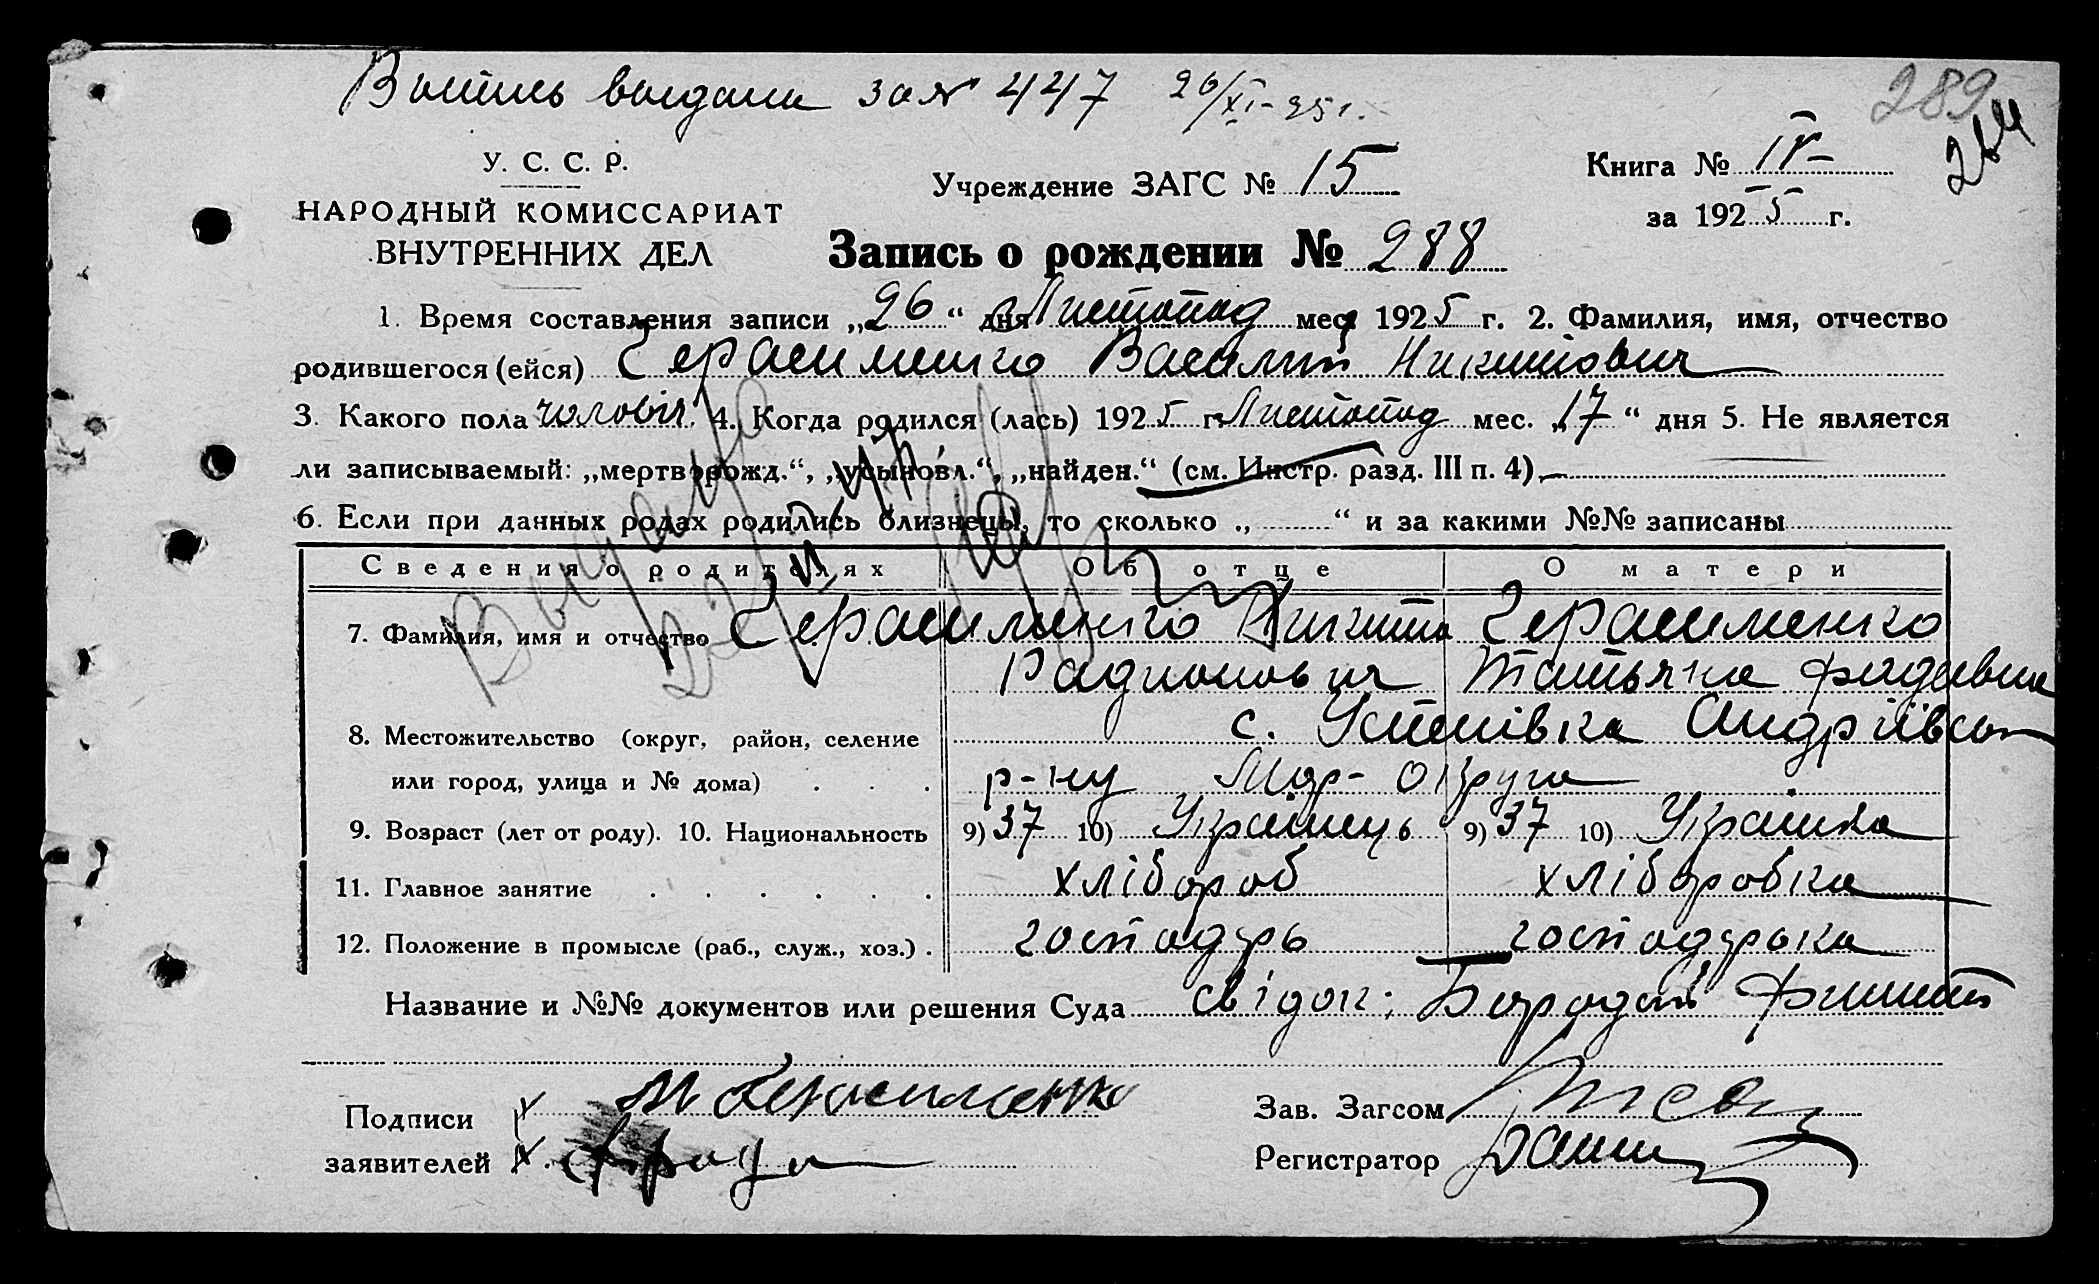 Випись выдана за № 447 26/XI-25 г.
289
264
У. С. С. Р.
НАРОДНЫЙ КОМИССАРИАТ
ВНУТРЕННИХ ДЕЛ
Учреждение ЗАГС № 15
Книга № IV
за 1925 г.
Запись о рождении № 288
1. Время составления записи „26“ дня Листопад мес. 1925 г. 2. Фамилия, имя, отчество
родившегося (ейся) Герасименко Василий Никитович
3. Какого пола чоловіч. 4. Когда родился (лась) 1925 г. Листопад мес. „17“ дня 5. Не является
ли записываемый: „мертворожд.“, „усыновл.“, „найден.“ (см. Инстр. разд. III п. 4) —
6. Если при данных родах родились близнецы, то сколько „ “ и за какими №№ записаны
Сведения о родителях Об отце О матери
7. Фамилия, имя и отчество Герасименко Никита Герасименко
Радионович Татьяна
8. Местожительство (округ, район, селение с. Успенівка Андріївськ
или город, улица и № дома) . . . р-ну Мар- округа
9. Возраст (лет от роду). 10. Национальность 9) 37 10) Українець 9) 37 10) Українка
11. Главное занятие . . . . . . хлібороб хлібробка
12. Положение в промысле (раб., служ., хоз.) . господарь господарька
Название и №№ документов или решения Суда свідок: Бородай
Подписи Герасименко
заявителей
Зав. Загсом
Регистратор